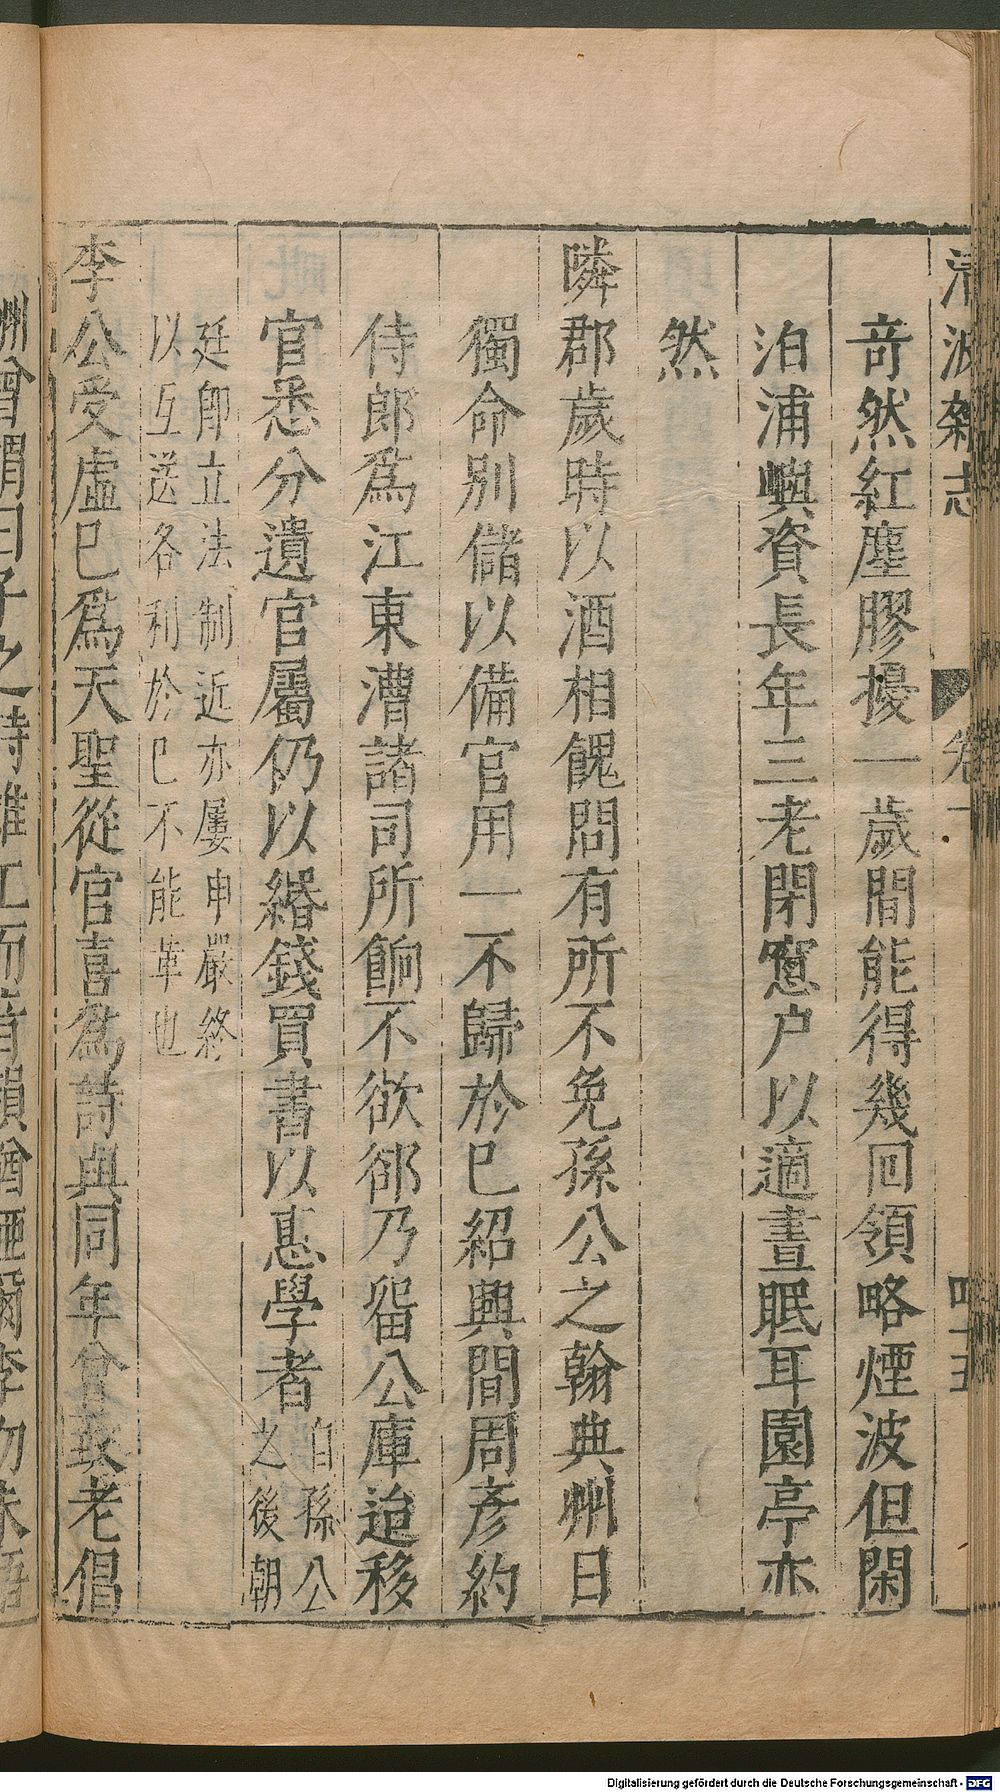 清波雜志
卷一
竒然紅塵膠擾一歲間能得幾回領略煙波但閑
泊浦嶼資長年三老閉窻户以適晝眠耳園亭亦
然
隣郡歲時以酒相餽問有所不免孫公之翰典州日
獨命别儲以備官用一不歸於已紹興間周彥約
侍郎爲江東漕諸司所餉不欲郤乃留公庫迨移
官悉分遺官屬仍以緡錢買書以惠學者自孫公
之後朝
廷卽立法制近亦屢申嚴終
以互送各利於已不能革也
李公受虛已爲天聖從官喜爲詩與同年曾致老倡
Digitalisierung gefördert durch die Deutsche Forschungsgemeinschaft - DFG